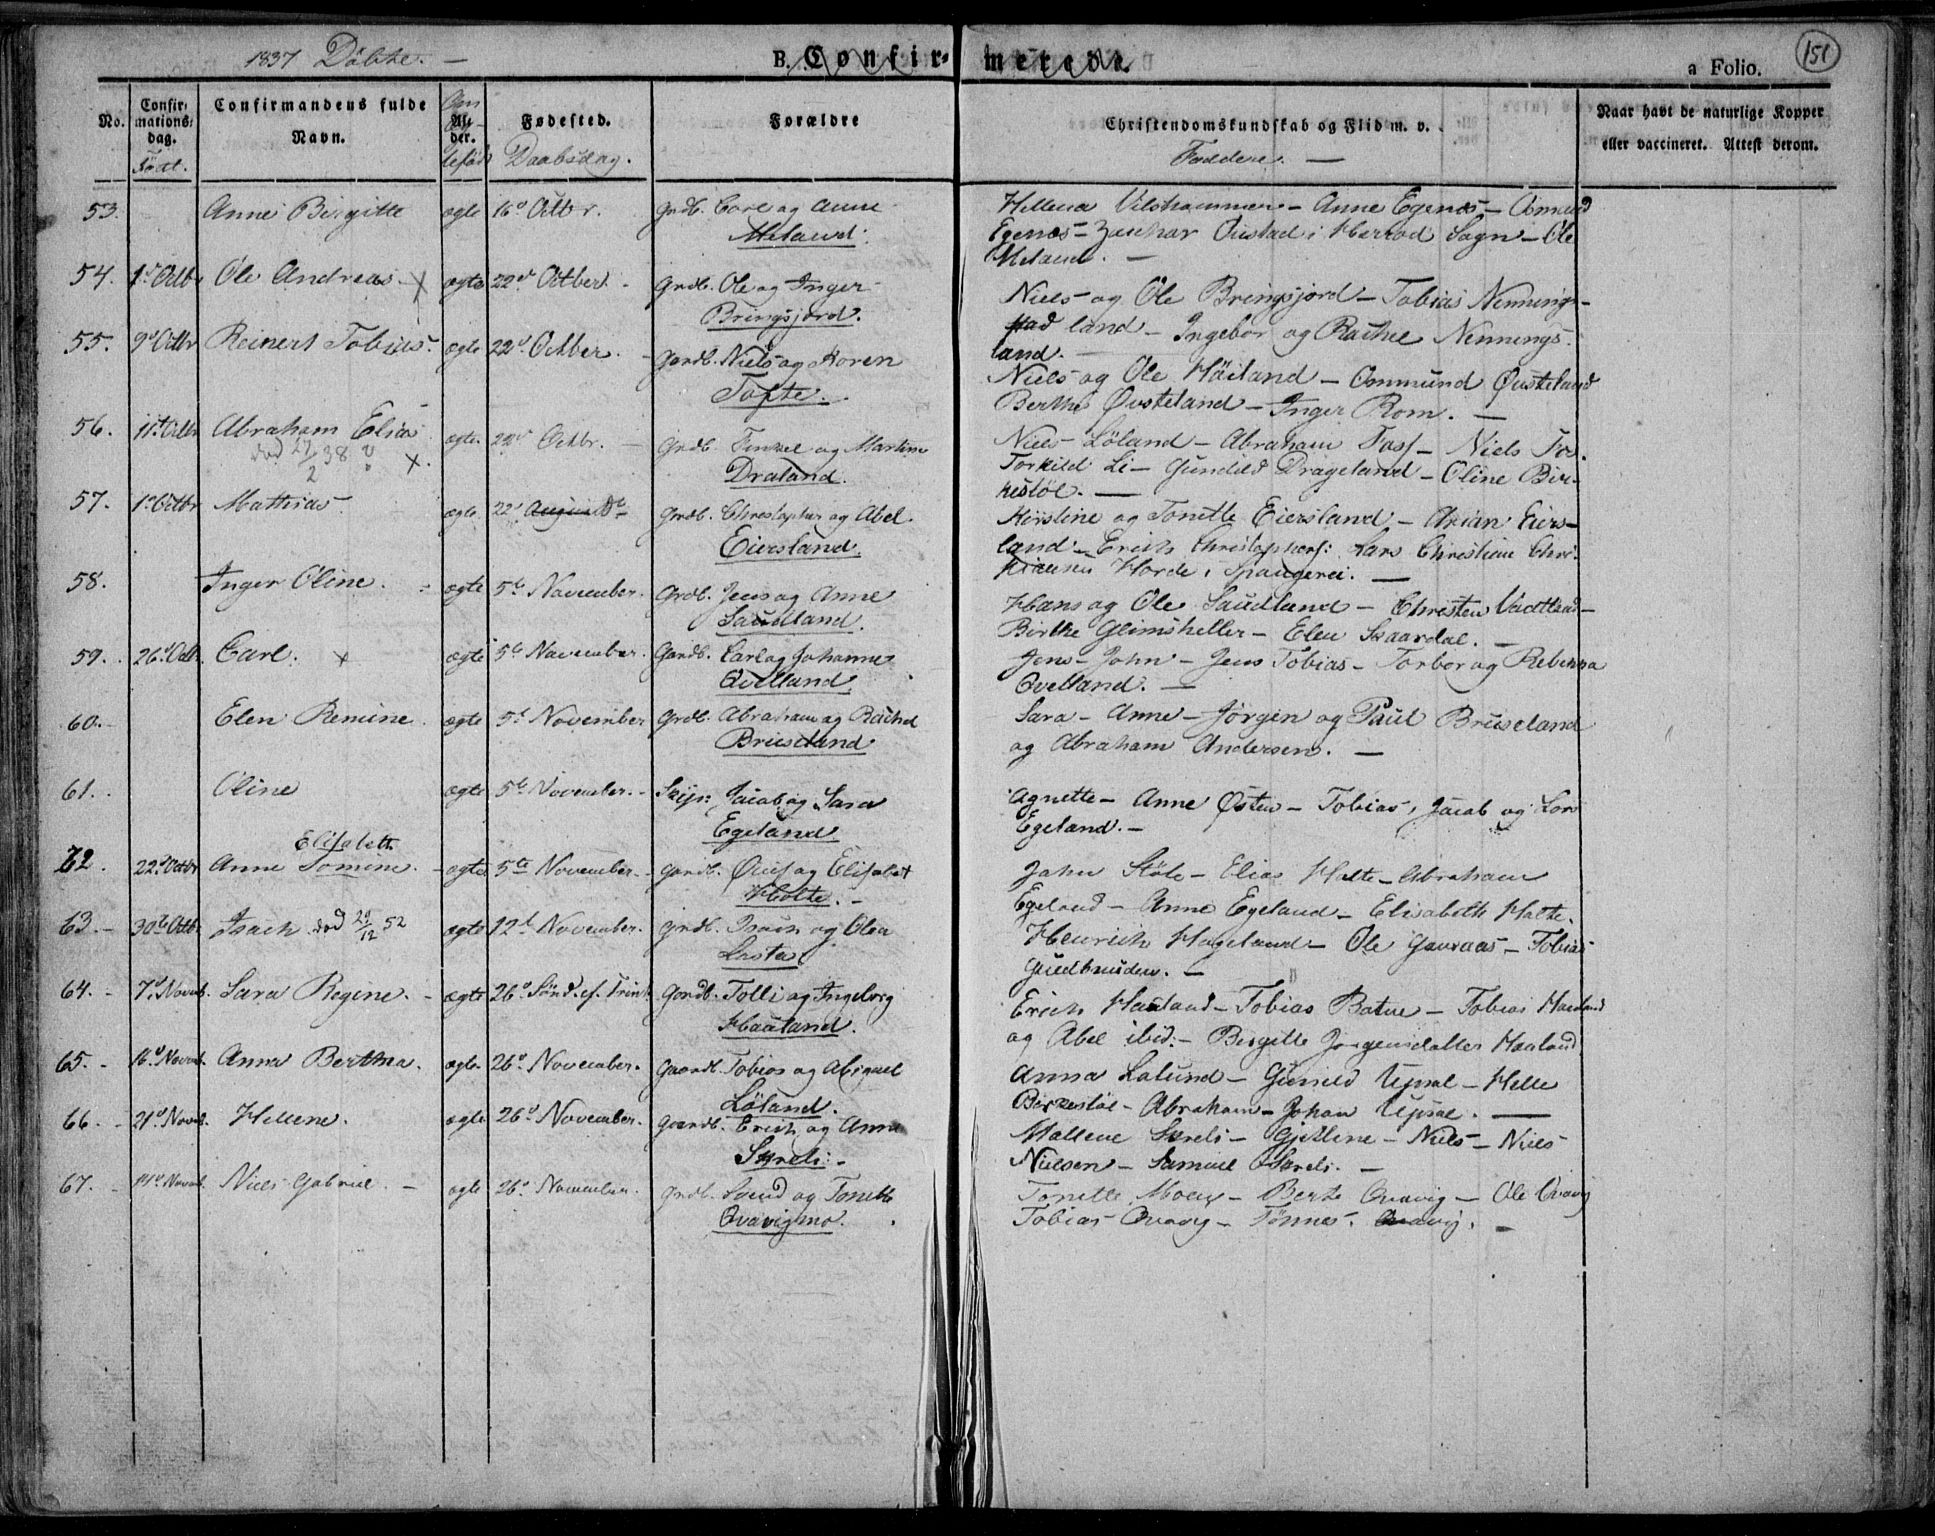 1837 Döbte. —
B. Confirmerede.
a Folio.
151
No.
Confirmationsdag.
Födt.
Confirmandens fulde Navn.
Alder.
Fødested.
Daabsdag.
Forældre
Christendomskundskab og Flid m. v.
Faddere. —
Naar havt de naturlige Kopper eller vaccineret. Attest derom.
53. Anne Birgitte ægte 16d Octbr. Grdb. Carl og Anne
Meland.
Hellena Vilshammer - Anne Egenæs - Asmund
Egenæs - Zachar Oustad i Herrod Sogn - Ole
Meland. —
54. 1st Octbr Ole Andreas x ægte 22d Octber. Grdb. Ole og Inger
Bringsjord.
Niels og Ole Bringsjord - Tobias Nennings-
land - Ingebor og Rachel Nennings-
land. —
55. 9d Octbr Reinert Tobias. ægte 22d Octber. Gardb. Niels og Karen
Tofte.
Niels og Ole Höiland - Ommund Øvsteland
Berthe Øvsteland - Inger Rom. —
56. 11te Octbr Abraham Elias ægte. 22d Octbr. — Grdb. Tinkel og Martine
död 27/2 38 x.
Draland.
Niels Löland - Abraham Foss - Niels Fos.
Torkild Li - Gunild Drageland - Oline Bir-
kestöl. —
57. 1st Octbr Mathias ægte 22d August Grdb. Christopher og Abel
Eiersland.
Kirstine og Tonette Eiersland - Arian Eiers-
land - Erich Christophers: Lars Christian Chri-
stiansen Horde i Spangerei. —
58. Inger Oline. ægte 5te November. Grdb. Jens og Anne
Saudland.
Hans og Ole Saudland - Christen Vadtland -
Birthe Glimsheller - Elen Skaardal. —
59. 26d Octb. Carl. x ægte 5te November. Gardb. Carl og Johanne
Qvelland.
Jens - John - Jens Tobias - Torbor og Rebekka
Qvelland. —
60. Elen Remine. ægte 5te November Grdb. Abraham og Rachel
Bruseland
Sara - Anne - Jörgen og Paul Bruseland
og Abraham Andersen. —
61. Oline ægte 5te November. - Jacob og Sara
Egeland
Agnette - Anne Østen - Tobias, Jacob og
Egeland. -
Elisabeth
62. 22d Octbr Anne Tomine. ægte 5te November. Gardb. og Elisabet
Holte. -
John Stöle - Elias Holte - Abraham
Egeland - Anne Egeland - Elisabeth Holte.
63. 30te Octbr Isach död 29/12 52 ægte 12te November. Grdb. Isach og Olea
Lasta
Henrich Hageland - Ole - Tobias
Gudbrusden. —
64. 7d Novemb. Sara Regine. ægte 26d Sönd. ef. Trinit. Gardb. Tolli og Ingeborg
Haaland.
Erich Haaland - Tobias Batne - Tobias Haaland
og Abel ibid: - Birgitte Jörgensdatter Haaland
65. 16d Novemb. Anna Bertha. ægte 26d November. Gaardb. Tobias og Abigael
Löland.
Anna Lalund - Gunild Upsal - Helle
Birkestöl - Abraham - Johan Upsal. —
66. 21d Novemb. Hellene. ægte 26d November. Gaardb. Erich og Anna
Skreli. -
Mallene Skreli - Gjetlene - Niels - Niels
Nielsen - Samuel Skreli. —
67. 14d Novemb. Niels Gabriel - ægte 26d November. Grdb. Svend og Tonette
Qvavigmo.
Tonette Moen - Berte Qvavig - Ole Qvavig
Tobias Qvavig - Tönnes Qvavig. —